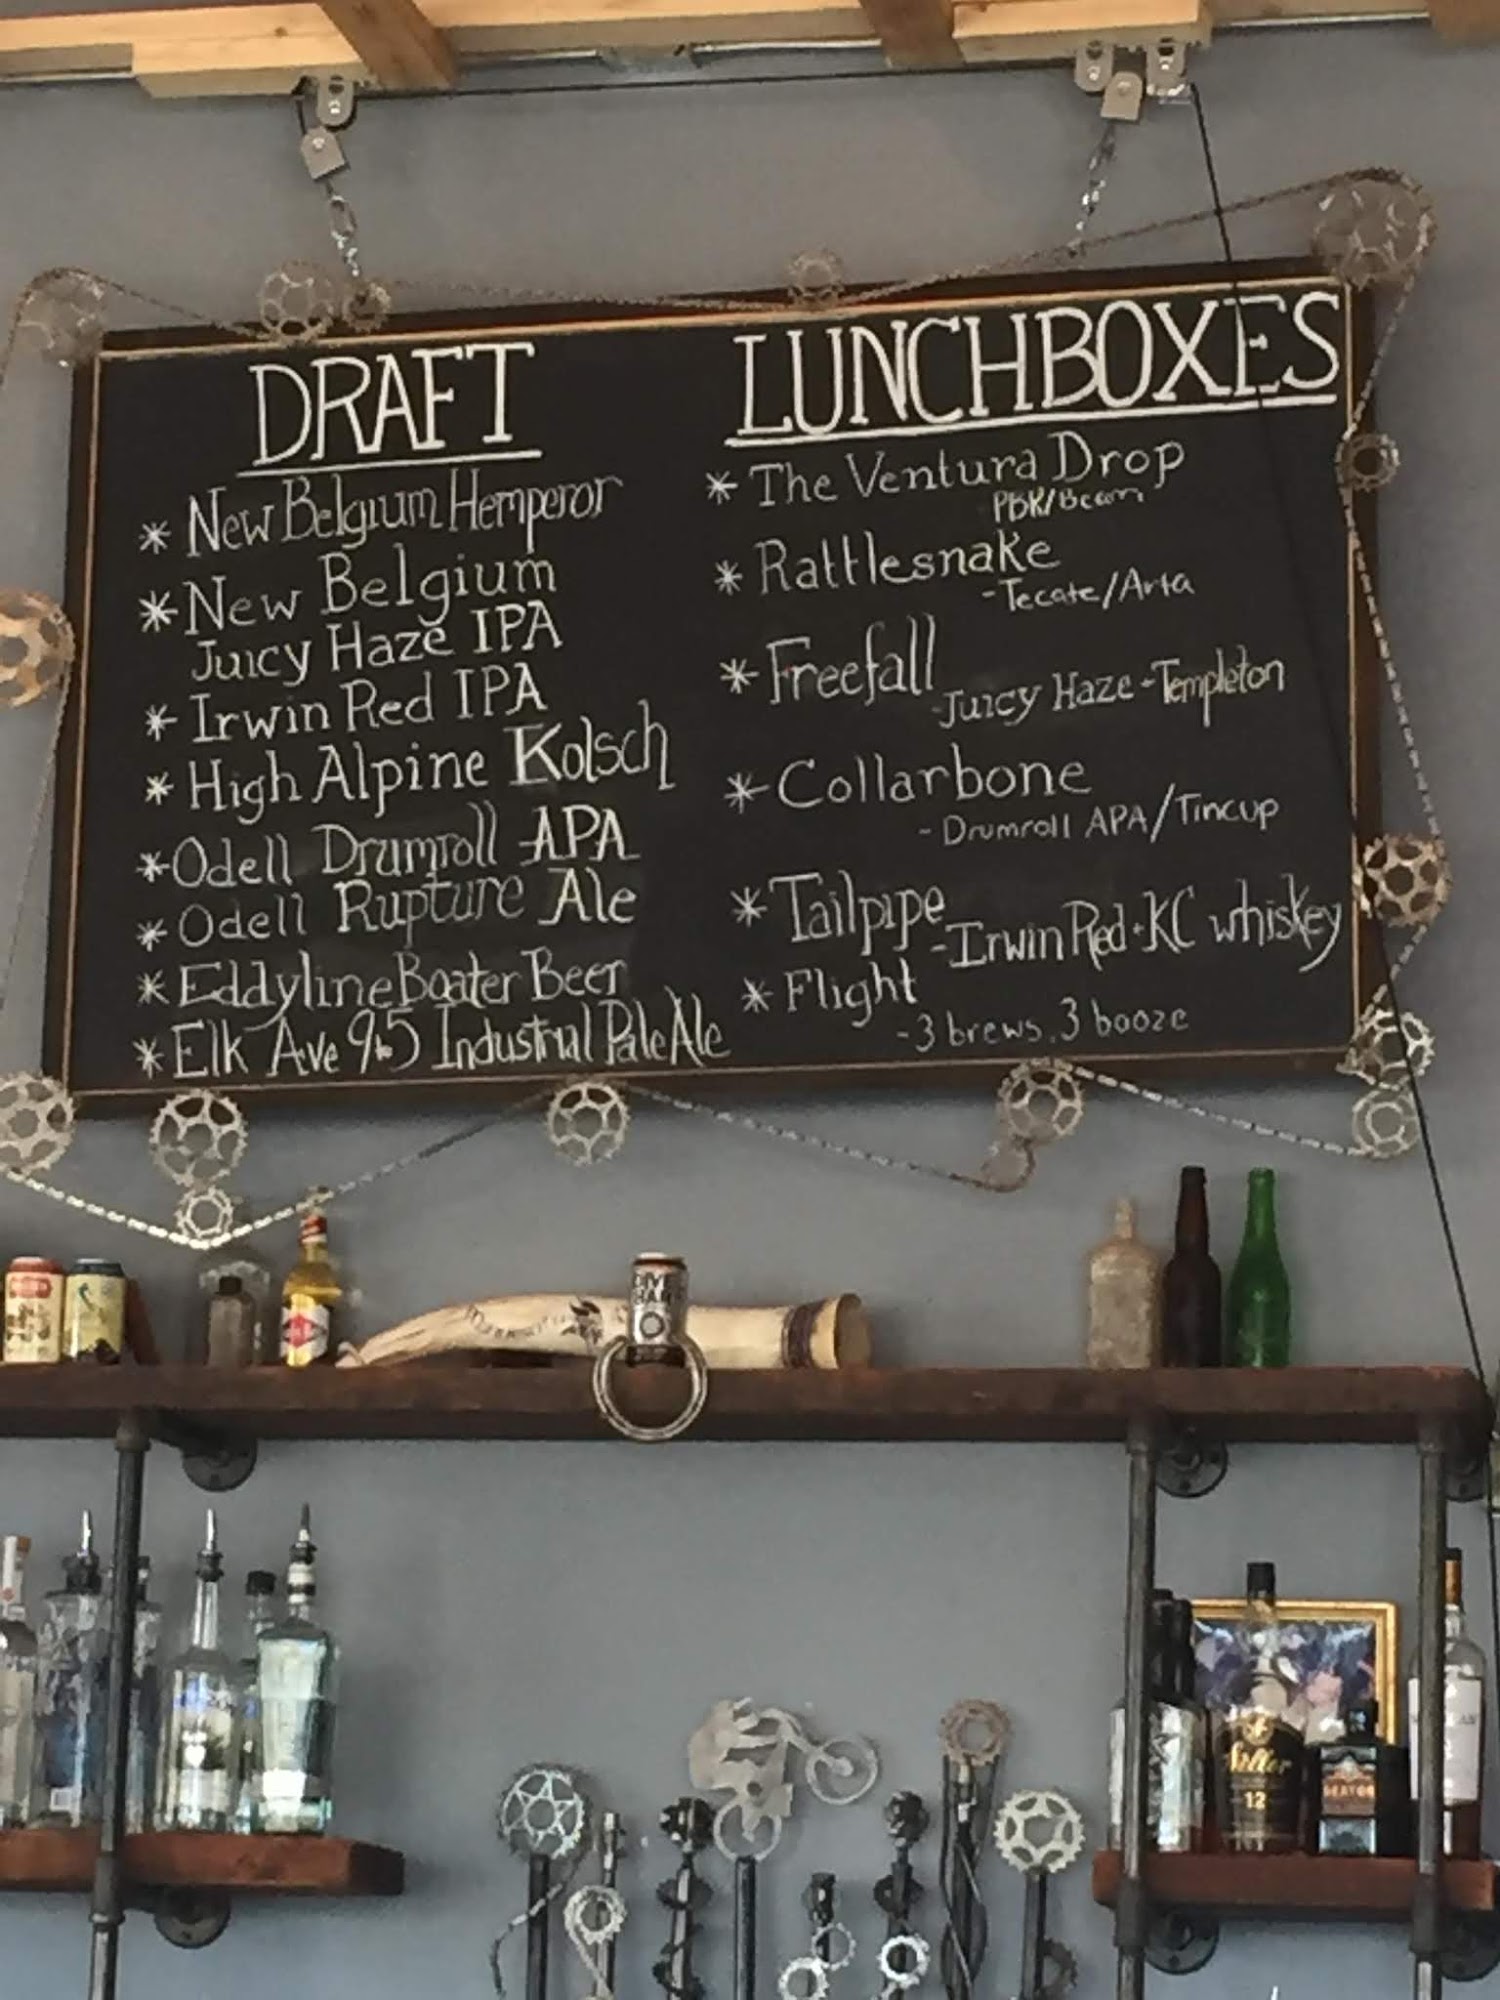 DRAFT
* New Belgium Hemperor
* New Belgium
Juicy Haze IPA
* Irwin Red IPA
* High Alpine Kolsch
* Odell Drumroll APA
* Odell Rupture Ale
* Eddyline Boater Beer
* Elk Ave 9-5 Industrial Pale Ale
LUNCHBOXES
* The Ventura Drop
PBR/Beam
* Rattlesnake
- Tecate/Arta
* Freefall
- Juicy Haze - Templeton
* Collarbone
- Drumroll APA/Tincup
* Tailpipe
- Irwin Red + KC whiskey
* Flight
- 3 brews, 3 booze
Weller
12